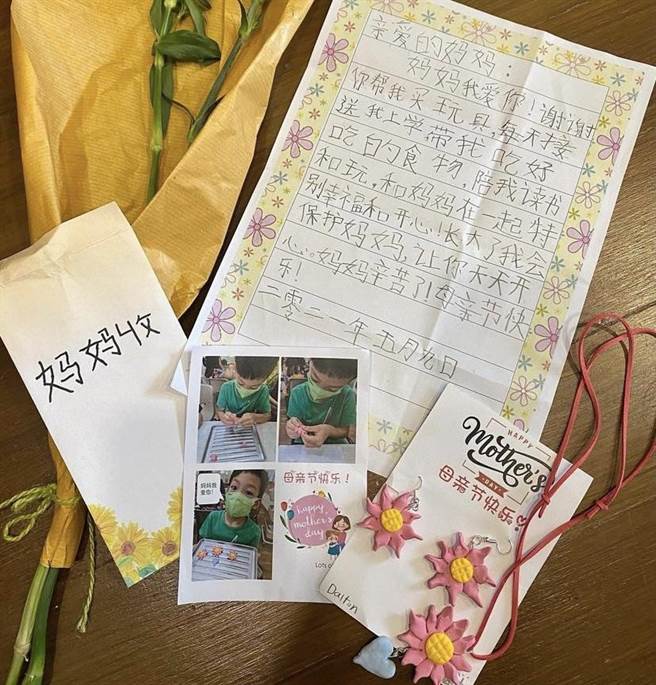 亲爱的妈妈:
妈妈我爱你!谢谢
你帮我买玩具,每天接
送我上学带我吃好
吃的食物,陪我读书
和玩,和妈妈在一起特
别幸福和开心!长大了我会
保护妈妈,让你天天开
心。妈妈辛苦了!母亲节快
乐!
二零二一年五月九日
妈妈收
妈妈我
爱你!
母亲节快乐!
happy
mother's
day
HAPPY
Mother's
DAY
母亲节快乐
Dalton